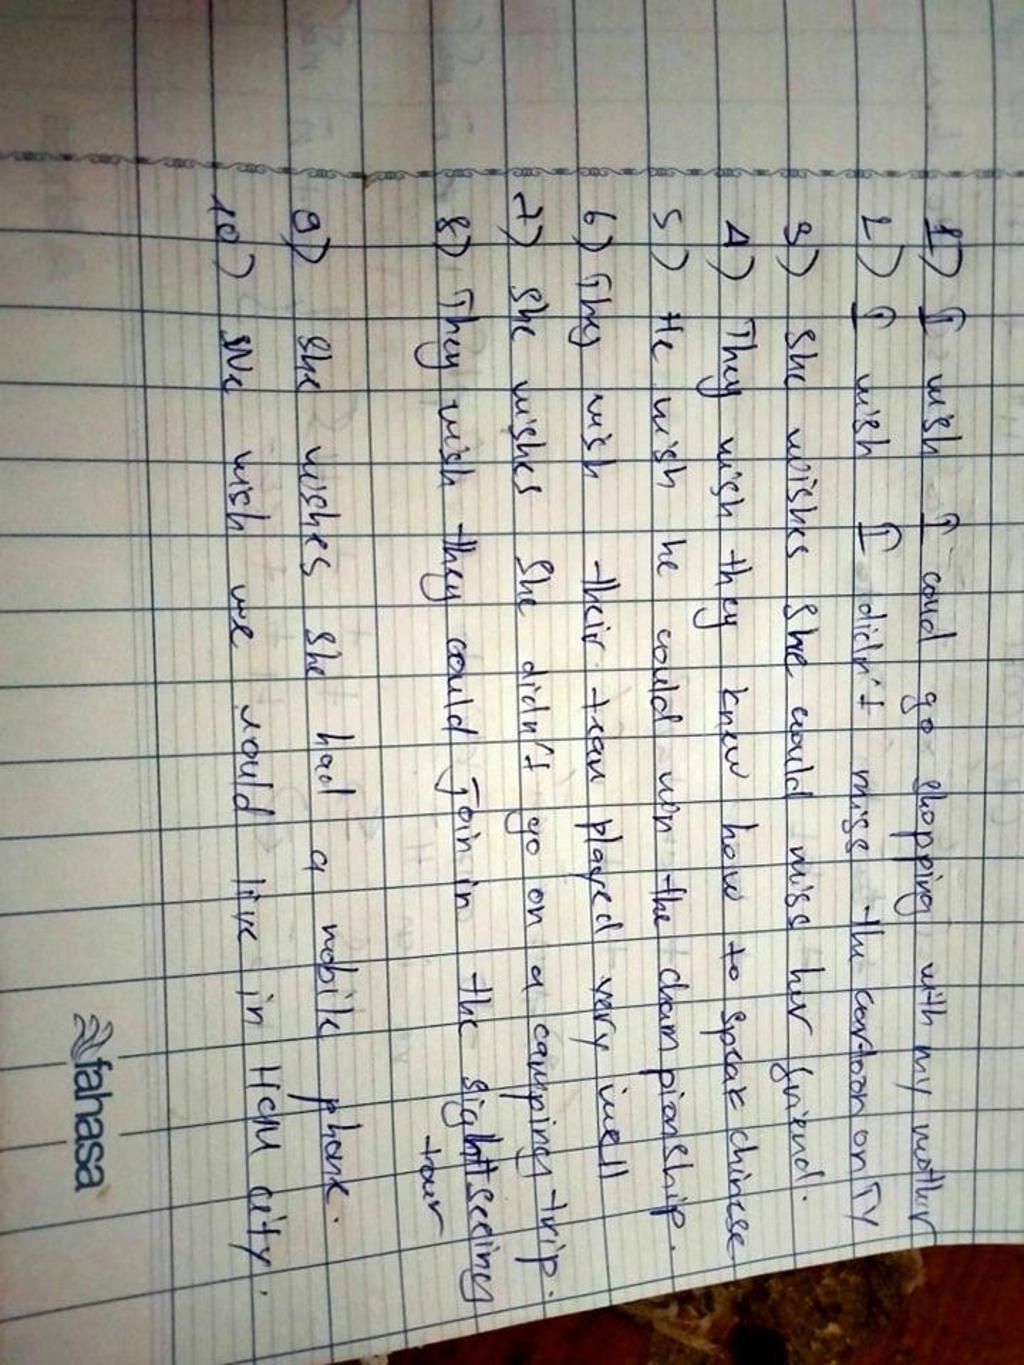 1) I wish I coud go shopping with my mother
2) I wish I didn't miss the cartoon on TV
3) She wishes she could miss her friend.
4) They wish they knew how to speak chinese
5) He wish he could won the championship.
6) They wish their team played very well
7) She wishes she didn't go on a camping trip.
8) They wish they could join in the sightseeing
tour
9) She wishes she had a mobile phone.
10) We wish we could live in HCM city.
fahasa